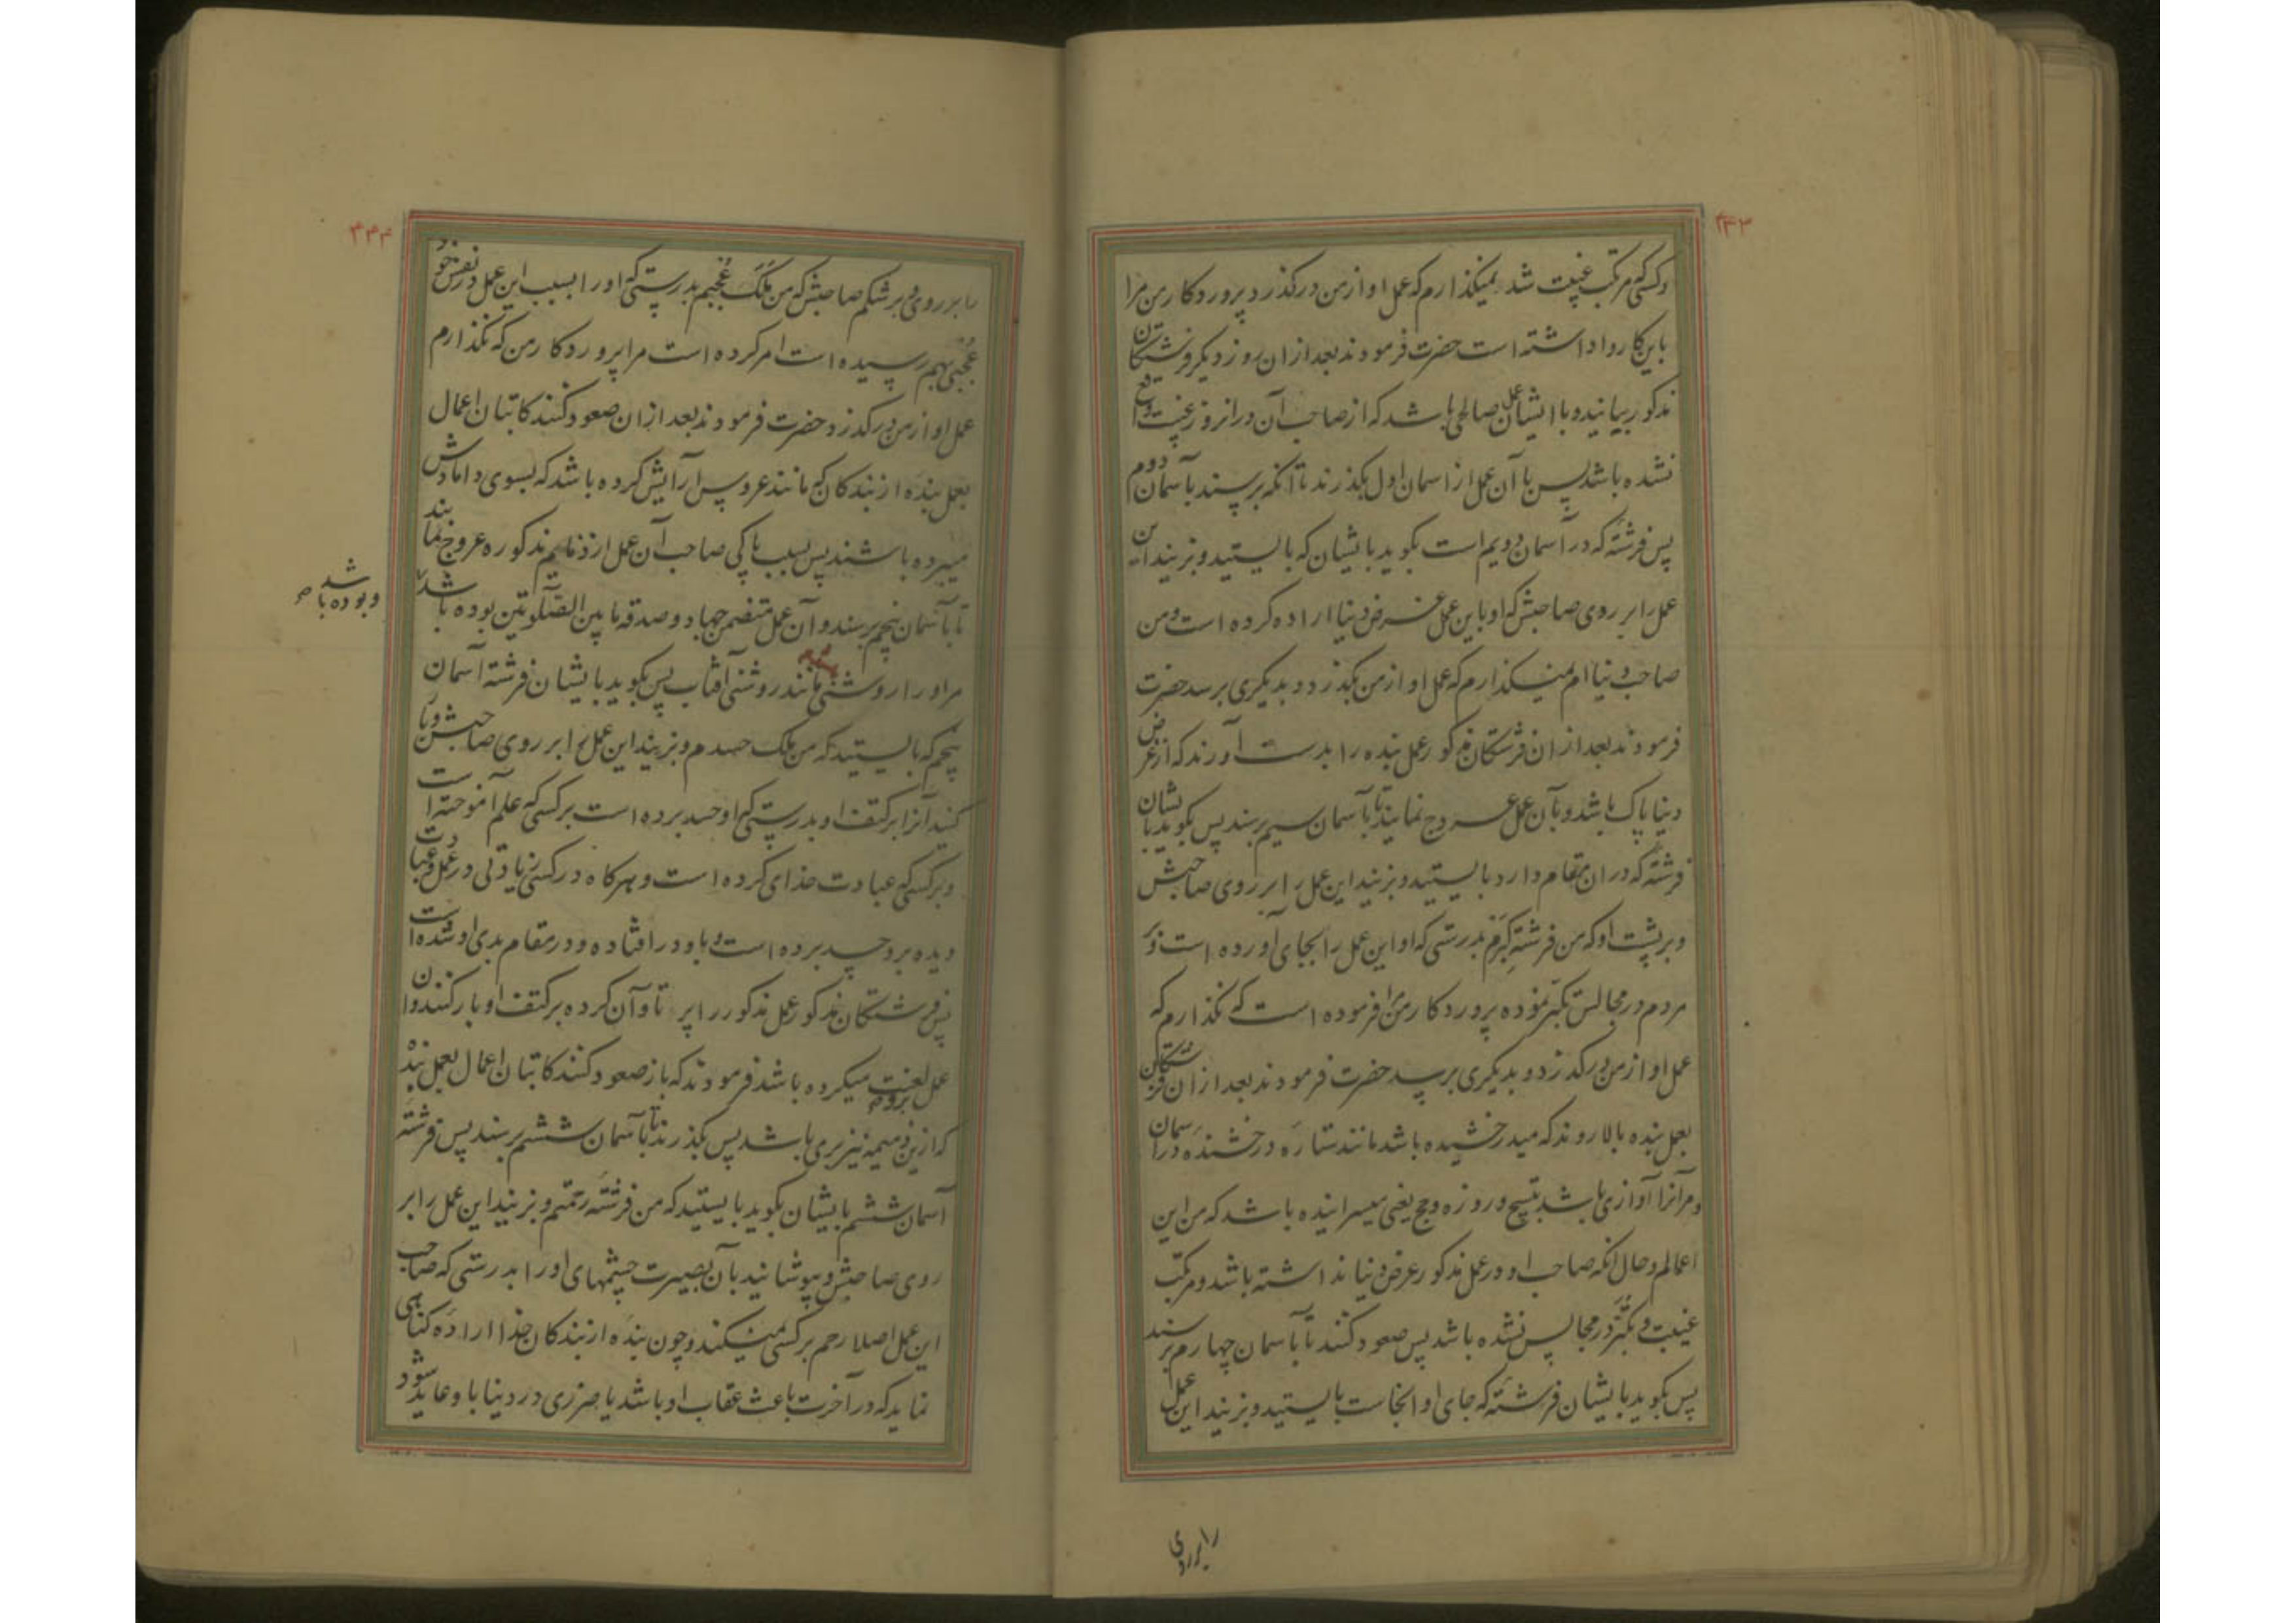 ۴۴۳
وکسی که مرتکب غیبت شد نمیکذارم که عمل او از من درکذرد پروردکار من مرا
باین کار واداشته است حضرت فرمودند بعد از ان روز دیکر فرشتکان
مذکور بیایند و با ایشان عمل صالحی باشد که از صاحب آن در انروز غیبت واقع
نشده باشد پس با آن عمل از اسمان اول بکذرند تا آنکه برسند بآسمان دوم
پس فرشتهٔ که در آسمان دویم است بکوید بایشان که بایستید و بزنید این
عمل را بر روی صاحبش که او باین عمل غرض دنیا اراده کرده است و من
صاحب دنیا ام نمیکذارم که عمل او از من بکذرد و بدیکری برسد حضرت
فرمودند بعد از ان فرشتکان مذکور عمل بنده را بدست آورند که از غرض
دنیا پاک باشد و بآن عمل عروج نمایند تا بآسمان سیم برسند پس بکوید بایشان
فرشتهٔ که در ان مقام دارد بایستید و بزنید این عمل را بر روی صاحبش
و بر پشت او که من فرشتهٔ کبرم بدرستی که او این عمل را بجای آورده است و بر
مردم در مجالس تکبر نموده پروردکار من مرا فرموده است که نکذارم که
عمل او از من درکذرد و بدیکری برسد حضرت فرمودند بعد از ان فرشتکان
بعمل بنده بالا روند که میدرخشیده باشد مانند ستارهٔ درخشنده در آسمان
و مر انرا آوازی باشد بتسبیح و روزه و حج یعنی میسراییده باشد که من این
اعمالم و حال انکه صاحب او در عمل مذکور عرض دنیا نداشته باشد و مرتکب
غیبت و تکبر در مجالس نشده باشد پس صعود کنند تا بآسمان چهارم برسند
پس بکوید بایشان فرشتهٔ که جای او انجاست بایستید و بزنید این عمل
را بر روی
۴۴۴
را بر روی و بر شکم صاحبش که من ملک عُجبم بدرستی که او را بسبب این عمل در نفس خود
عُجبی بهم رسیده است امر کرده است مرا پروردکار من که نکذارم
عمل او از من درکذرد و حضرت فرمودند بعد از ان صعود کنند کاتبان اعمال
بعمل بنده از بندکان که مانند عروس آرایش کرده باشد که بسوی دامادش
میبرده باشند پس بسبب پاکی صاحب آن عمل از ذمایم مذکوره عروج نمایند
تا بآسمان پنجم برسند و آن عمل متضمن جهاد و صدقه ما بین الصلوتین بوده باشد
و بوده باشد
مر او را روشنی مانند روشنی آفتاب پس بکوید بایشان فرشته آسمان
پنجم که بایستید که من ملک حسدم و بزنید این عمل را بر روی صاحبش و بار
کنید آنرا بر کتف او بدرستی که او حسد برده است بر کسی که علم آموخته است
و بر کسی که عبادت خدای کرده است و هر کاه در کسی زیادتی در عمل و عبادت
دیده برو حسد برده است و باو در افتاده و در مقام بدی او شده است
پس فرشتکان مذکور عمل مذکور را پر تاوان کرده بر کتف او بار کنند و ان
عمل لعنت برو میکرده باشد فرمودند که باز صعود کنند کاتبان اعمال بعمل بنده
که از ین ذمیمه نیز بری باشد پس بکذرند تا بآسمان ششم برسند پس فرشته
آسمان ششم بایشان بکوید بایستید که من فرشته رحمتم و بزنید این عمل را بر
روی صاحبش و بپوشانید بآن بصیرت چشمهای او را بدرستی که صاحب
این عمل اصلا رحم بر کسی نمیکند و چون بندهٔ از بندکان خدا ارادهٔ کناهی
نماید که در آخرت باعث عقاب او باشد یا ضرری در دنیا باو عاید شود